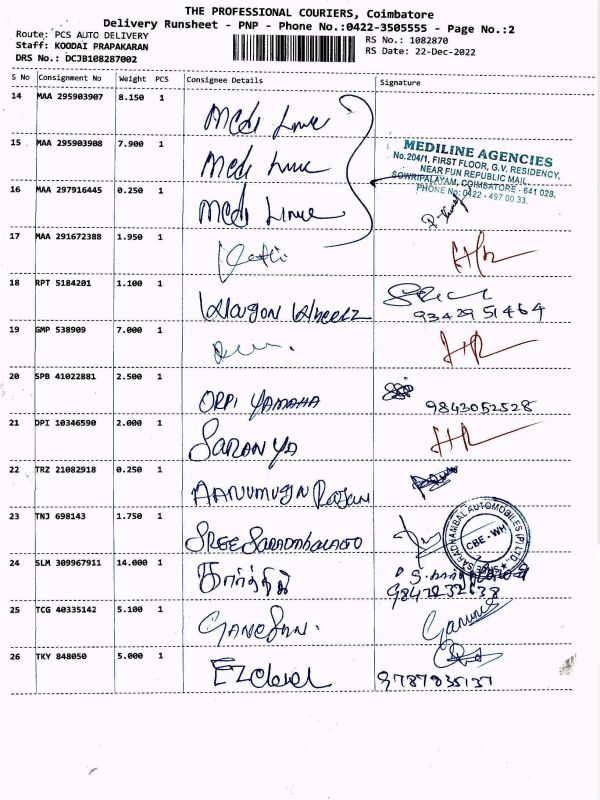 THE PROFESSIONAL COURIERS, Coimbatore
Delivery Runsheet - PNP - Phone No.:0422-3505555 - Page No.:2
Route: PCS AUTO DELIVERY RS No.: 1082870
Staff: KOODAI PRAPAKARAN RS Date: 22-Dec-2022
DRS No.: DCJB108287002
S No Consignment No Weight PCS Consignee Details Signature
14 MAA 295903907 8.150 1 Medi Line
15 MAA 295903908 7.900 1 Medi Line
MEDILINE AGENCIES
No.204/1, FIRST FLOOR, G.V. RESIDENCY,
NEAR FUN REPUBLIC MAIL,
SOWRIPALAYAM, COIMBATORE - 641 028.
PHONE No: 0422 - 497 00 33.
16 MAA 297916445 0.250 1 Medi Line
17 MAA 291672388 1.950 1
18 RPT 5184201 1.100 1 Wagon Wheelz
93429 51464
19 GMP 538909 7.000 1
20 SPB 41022881 2.500 1 ORPI YAMAHA 9843052528
21 DPI 10346590 2.000 1 SARANYA
22 TRZ 21082918 0.250 1 AARUMUGN Rajan
23 TNJ 698143 1.750 1 SREE
SARADHAMBAL AUTOMOBILES (P) LTD.
CBE - WH
24 SLM 309967911 14.000 1 கார்த்தி
25 TCG 40335142 5.100 1 GANESAN.
26 TKY 848050 5.000 1